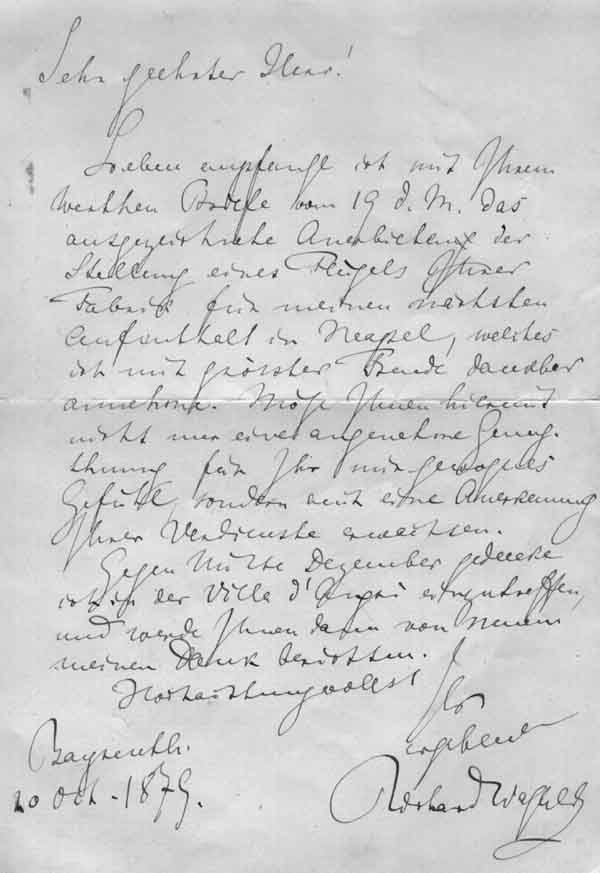 Sehr geehrter Herr!
Soeben empfange ich mit Ihrem
werthen Briefe vom 19 d. M. das
ausgezeichnete Anerbieten der
Stellung eines Flügels Ihrer
Fabrik für meinen nächsten
Aufenthalt in Neapel, welches
ich mit grösster Freude dankbar
annehme. Möge Ihnen hiermit
nicht nur eine angenehme Genug-
thuung für Ihr mir gewogenes
Gefühl, sondern auch eine Anerkennung
Ihrer Verdienste erwachsen.
Gegen Mitte Dezember gedenke
ich in der Villa d'Angri einzutreffen,
und werde Ihnen dann von Neuem
meinen Dank berichten.
Hochachtungsvollst
Ihr
ergebener
Richard Wagner
Bayreuth.
20 Oct. 1879.